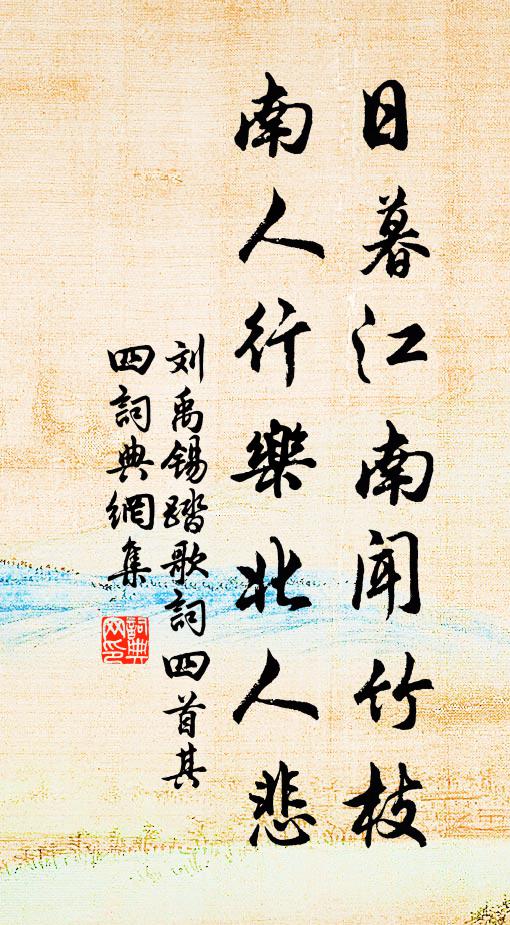 日暮江南聞竹枝
南人行樂北人悲
刘禹锡踏歌詞四首其
四詞典網集
詞典
网印